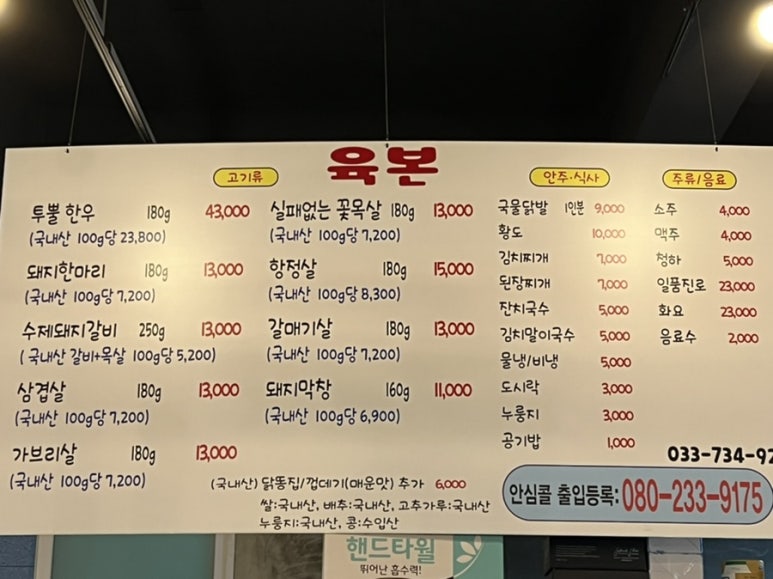 육본
고기류
투뿔 한우 180g 43,000
(국내산 100g당 23,800)
돼지한마리 180g 13,000
(국내산 100g당 7,200)
수제돼지갈비 250g 13,000
(국내산 갈비+목살 100g당 5,200)
삼겹살 180g 13,000
(국내산 100g당 7,200)
가브리살 180g 13,000
(국내산 100g당 7,200)
실패없는 꽃목살 180g 13,000
(국내산 100g당 7,200)
항정살 180g 15,000
(국내산 100g당 8,300)
갈매기살 180g 13,000
(국내산 100g당 7,200)
돼지막창 160g 11,000
(국내산 100g당 6,900)
(국내산) 닭똥집/껍데기(매운맛) 추가 6,000
쌀:국내산, 배추:국내산, 고추가루:국내산
누룽지:국내산, 콩:수입산
안주·식사
국물닭발 1인분 9,000
황도 10,000
김치찌개 7,000
된장찌개 7,000
잔치국수 5,000
김치말이국수 5,000
물냉/비냉 5,000
도시락 3,000
누룽지 3,000
공기밥 1,000
주류/음료
소주 4,000
맥주 4,000
청하 5,000
일품진로 23,000
화요 23,000
음료수 2,000
033-734-92
안심콜 출입등록: 080-233-9175
핸드타월
뛰어난 흡수력!